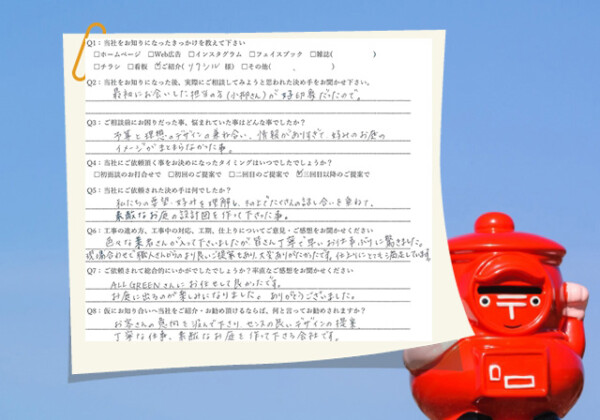 Q1：当社をお知りになったきっかけを教えて下さい
□ホームページ □Web広告 □インスタグラム □フェイスブック □雑誌( )
□チラシ □看板 ☑ご紹介(リクシル 様) □その他( )
Q2：当社をお知りになった後、実際にご相談してみようと思われた決め手をお聞かせ下さい。
最初にお会いした担当の方(小柳さん)が好印象だったので。
Q3：ご相談前にお困りだった事、悩まれていた事はどんな事でしたか？
予算と理想のデザインの兼ね合い、情報がありすぎて好みのお庭の
イメージがまとまらなかった事。
Q4：当社にご依頼頂く事をお決めになったタイミングはいつでしたでしょうか？
□初面談のお打合せで □初回のご提案で □二回目のご提案で ☑三回目以降のご提案で
Q5：当社にご依頼された決め手は何でしたか？
私たちの要望・好みを理解し、その上でたくさんの話し合いを重ねて、
素敵なお庭の設計図を作って下さった事。
Q6：工事の進め方、工事中の対応、工期、仕上りについてご意見・ご感想をお聞かせください
色々な業者さんが入って下さいましたが皆さん丁寧で早いお仕事ぶりに驚きました。
現場合わせで職人さんからのより良いご提案もあり、大変ありがたかったです。仕上りにとても満足しています。
Q7：ご依頼されて総合的にいかがでしたでしょうか？率直なご感想をお聞かせください
ALL GREENさんにお任せして良かったです。
お庭に出るのが楽しみになりました。ありがとうございました。
Q8：仮にお知り合いへ当社をご紹介・お勧め頂けるならば、何と言ってお勧めされますか？
お客さんの意向を汲んで下さり、センスの良いデザインの提案、
丁寧な仕事、素敵なお庭を作って下さる会社です。